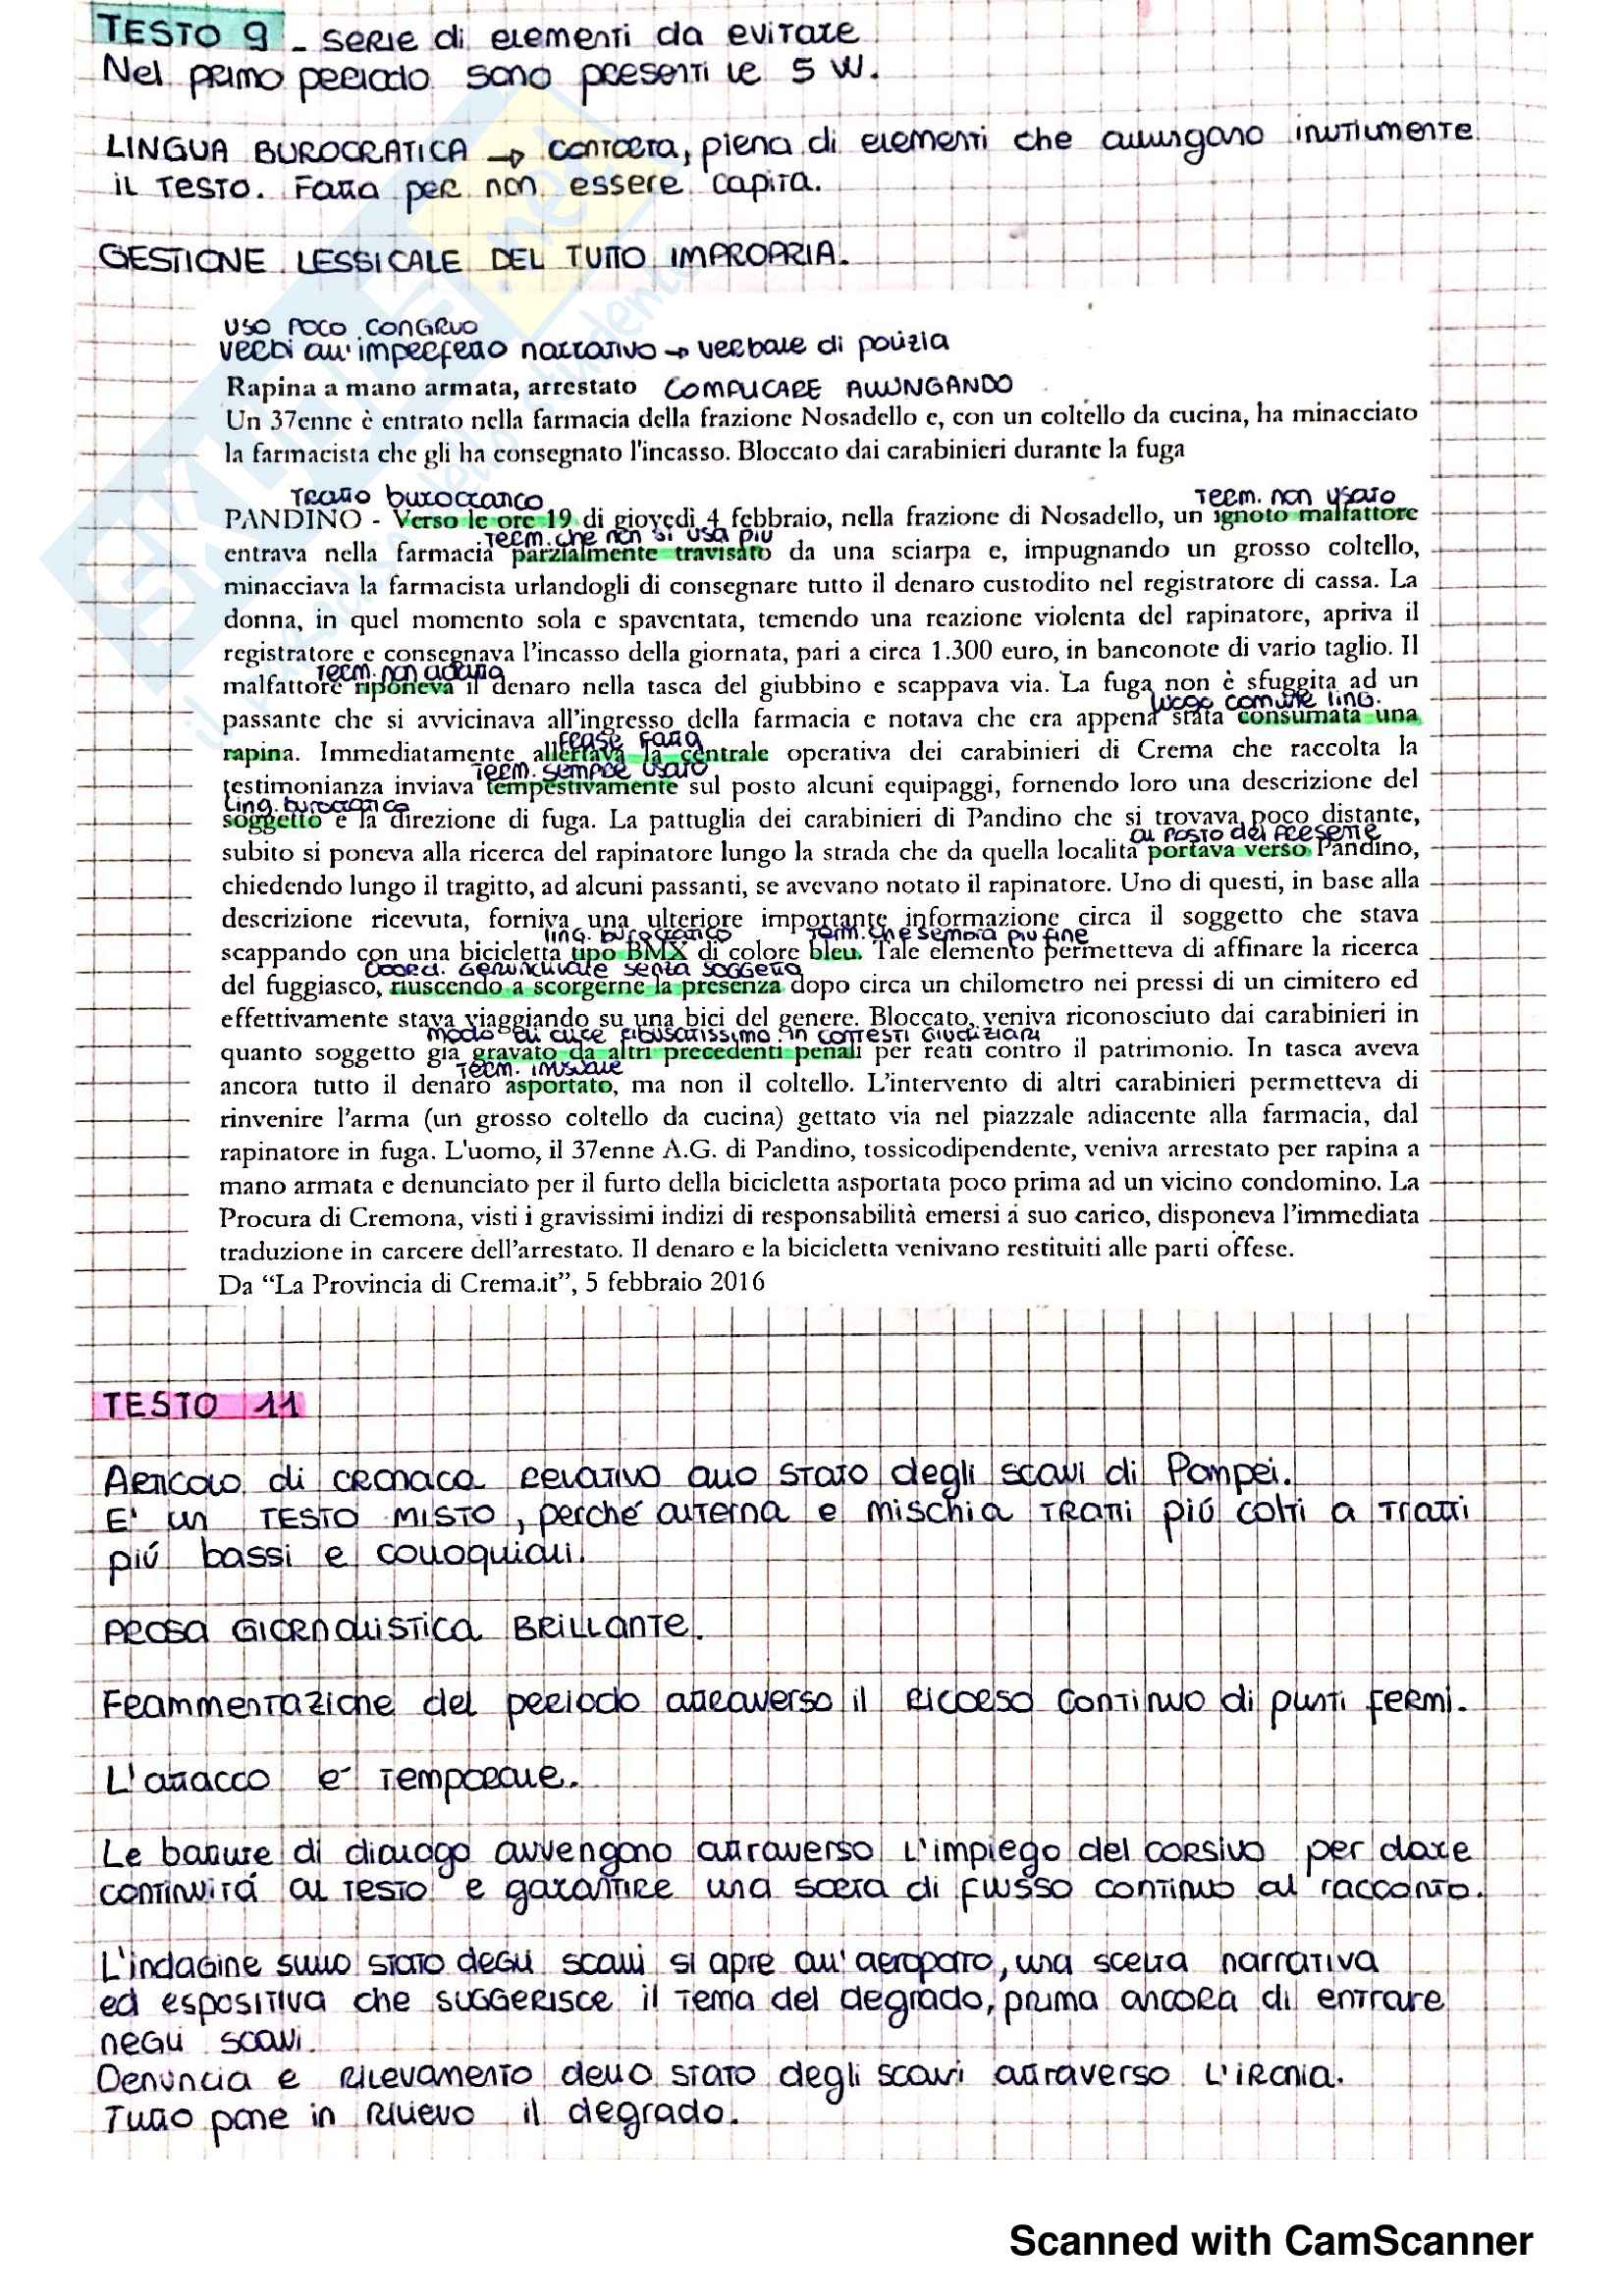 TESTO 9 - serie di elementi da evitare
Nel primo periodo sono presenti le 5 W.
LINGUA BUROCRATICA → contorta, piena di elementi che allungano inutilmente
il testo. Fatta per non essere capita.
GESTIONE LESSICALE DEL TUTTO IMPROPRIA.
USO POCO CONGRUO
verbi all'imperfetto narrativo → verbale di polizia
Rapina a mano armata, arrestato COMPLICARE ALLUNGANDO
Un 37enne è entrato nella farmacia della frazione Nosadello e, con un coltello da cucina, ha minacciato
la farmacista che gli ha consegnato l'incasso. Bloccato dai carabinieri durante la fuga
Tratto burocratico Term. non usato
PANDINO - Verso le ore 19 di giovedì 4 febbraio, nella frazione di Nosadello, un ignoto malfattore
Term. che non si usa più
entrava nella farmacia parzialmente travisato da una sciarpa e, impugnando un grosso coltello,
minacciava la farmacista urlandogli di consegnare tutto il denaro custodito nel registratore di cassa. La
donna, in quel momento sola e spaventata, temendo una reazione violenta del rapinatore, apriva il
registratore e consegnava l'incasso della giornata, pari a circa 1.300 euro, in banconote di vario taglio. Il
Term. non adatto
malfattore riponeva il denaro nella tasca del giubbino e scappava via. La fuga non è sfuggita ad un
luogo comune ling.
passante che si avvicinava all'ingresso della farmacia e notava che era appena stata consumata una
frase fatta
rapina. Immediatamente allertava la centrale operativa dei carabinieri di Crema che raccolta la
Term. sempre usato
testimonianza inviava tempestivamente sul posto alcuni equipaggi, fornendo loro una descrizione del
ling. burocratico
soggetto e la direzione di fuga. La pattuglia dei carabinieri di Pandino che si trovava poco distante,
al posto del presente
subito si poneva alla ricerca del rapinatore lungo la strada che da quella località portava verso Pandino,
chiedendo lungo il tragitto, ad alcuni passanti, se avevano notato il rapinatore. Uno di questi, in base alla
descrizione ricevuta, forniva una ulteriore importante informazione circa il soggetto che stava
ling. burocratico Term. che sembra più fine
scappando con una bicicletta tipo BMX di colore bleu. Tale elemento permetteva di affinare la ricerca
coord. gerundiale senza soggetto
del fuggiasco, riuscendo a scorgerne la presenza dopo circa un chilometro nei pressi di un cimitero ed
effettivamente stava viaggiando su una bici del genere. Bloccato, veniva riconosciuto dai carabinieri in
modo di dire abusatissimo in contesti giudiziari
quanto soggetto già gravato da altri precedenti penali per reati contro il patrimonio. In tasca aveva
Term. inusuale
ancora tutto il denaro asportato, ma non il coltello. L'intervento di altri carabinieri permetteva di
rinvenire l'arma (un grosso coltello da cucina) gettato via nel piazzale adiacente alla farmacia, dal
rapinatore in fuga. L'uomo, il 37enne A.G. di Pandino, tossicodipendente, veniva arrestato per rapina a
mano armata e denunciato per il furto della bicicletta asportata poco prima ad un vicino condomino. La
Procura di Cremona, visti i gravissimi indizi di responsabilità emersi a suo carico, disponeva l'immediata
traduzione in carcere dell'arrestato. Il denaro e la bicicletta venivano restituiti alle parti offese.
Da “La Provincia di Crema.it”, 5 febbraio 2016
TESTO 11
Articolo di cronaca relativo allo stato degli scavi di Pompei.
E' un TESTO MISTO, perché alterna e mischia tratti più colti a tratti
più bassi e colloquiali.
PROSA GIORNALISTICA BRILLANTE.
Frammentaziche del periodo attraverso il ricorso continuo di punti fermi.
L'attacco è temporale.
Le battute di dialogo avvengono attraverso l'impiego del corsivo per dare
continuità al testo e garantire una sorta di flusso continuo al racconto.
L'indagine sullo stato degli scavi si apre all'aeroporto, una scelta narrativa
ed espositiva che suggerisce il tema del degrado, prima ancora di entrare
negli scavi.
Denuncia e rilevamento dello stato degli scavi attraverso l'ironia.
Tutto pone in rilievo il degrado.
Scanned with CamScanner